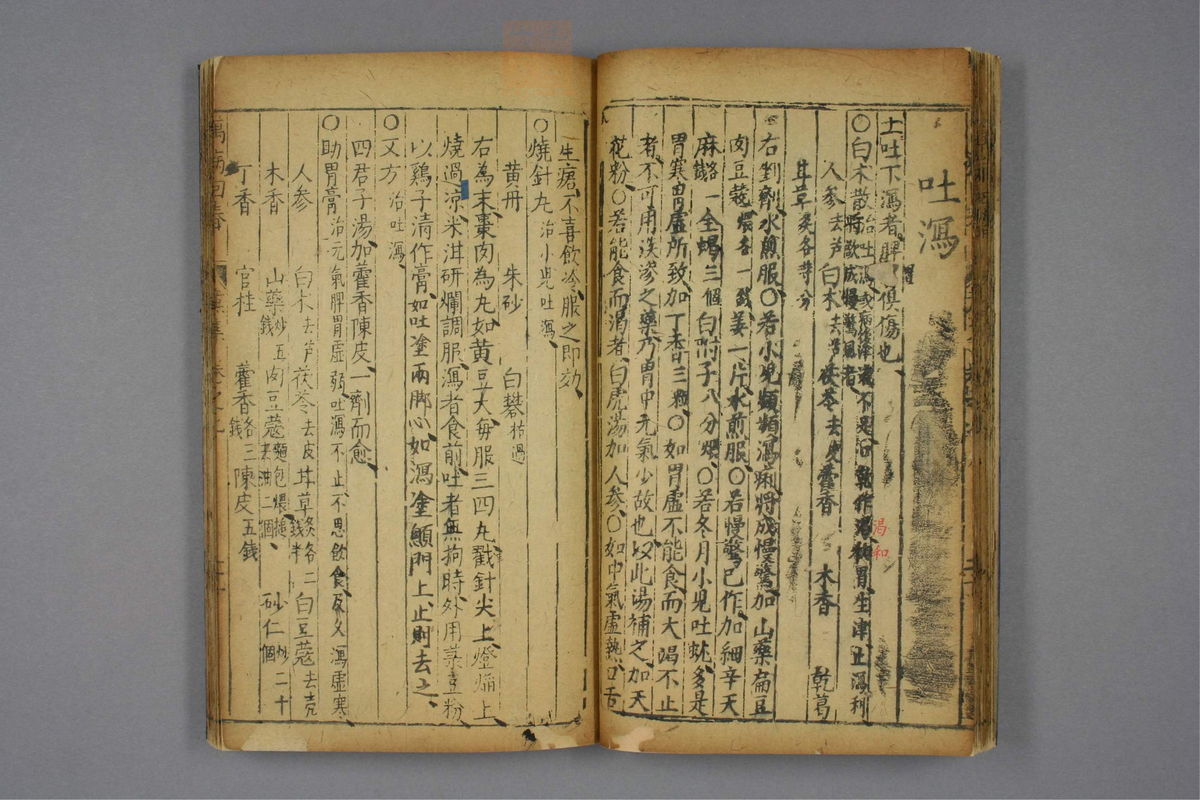 吐瀉
上吐下瀉者脾胃俱傷也
○白朮散治吐瀉或病後津液不足口乾作渴和胃生津止瀉利
將欲成慢驚風者
渴和
人參去芦 白朮去芦 茯苓去皮 藿香 木香 乾葛
甘草炙各等分
右剉劑水煎服○若小兒頻頻瀉痢將成慢驚加山藥扁豆
肉豆蔻煨各一錢姜一片水煎服○若慢驚已作加細辛天
麻各一錢全蝎三個白附子八分煨○若冬月小兒吐蚘多是
胃寒胃虛所致加丁香三粒○如胃虛不能食而大渴不止
者不可用淡滲之藥乃胃中元氣少故也以此湯補之加天
花粉○若能食而渴者白虎湯加人參○如中氣虛熱口舌
生瘡不喜飲冷服之即効
○燒針丸 治小兒吐瀉
黃丹 朱砂 白礬枯過
右為末棗肉為丸如黃豆大每服三四丸戳針尖上燈焰上
燒過涼米泔研爛調服瀉者食前吐者無拘時外用菉豆粉
以鷄子清作膏如吐塗兩脚心如瀉塗顖門上止則去之
○又方 治吐瀉
四君子湯加藿香陳皮一劑而愈
○助胃膏 治元氣脾胃虛弱吐瀉不止不思飲食及久瀉虛寒
人參 白朮去芦 茯苓去皮 甘草炙各二錢半 白豆蔻去壳
木香 山藥炒五錢 肉豆蔻麵包煨搥去油二個 砂仁炒二十個
丁香 官桂 藿香各三錢 陳皮五錢
萬病回春